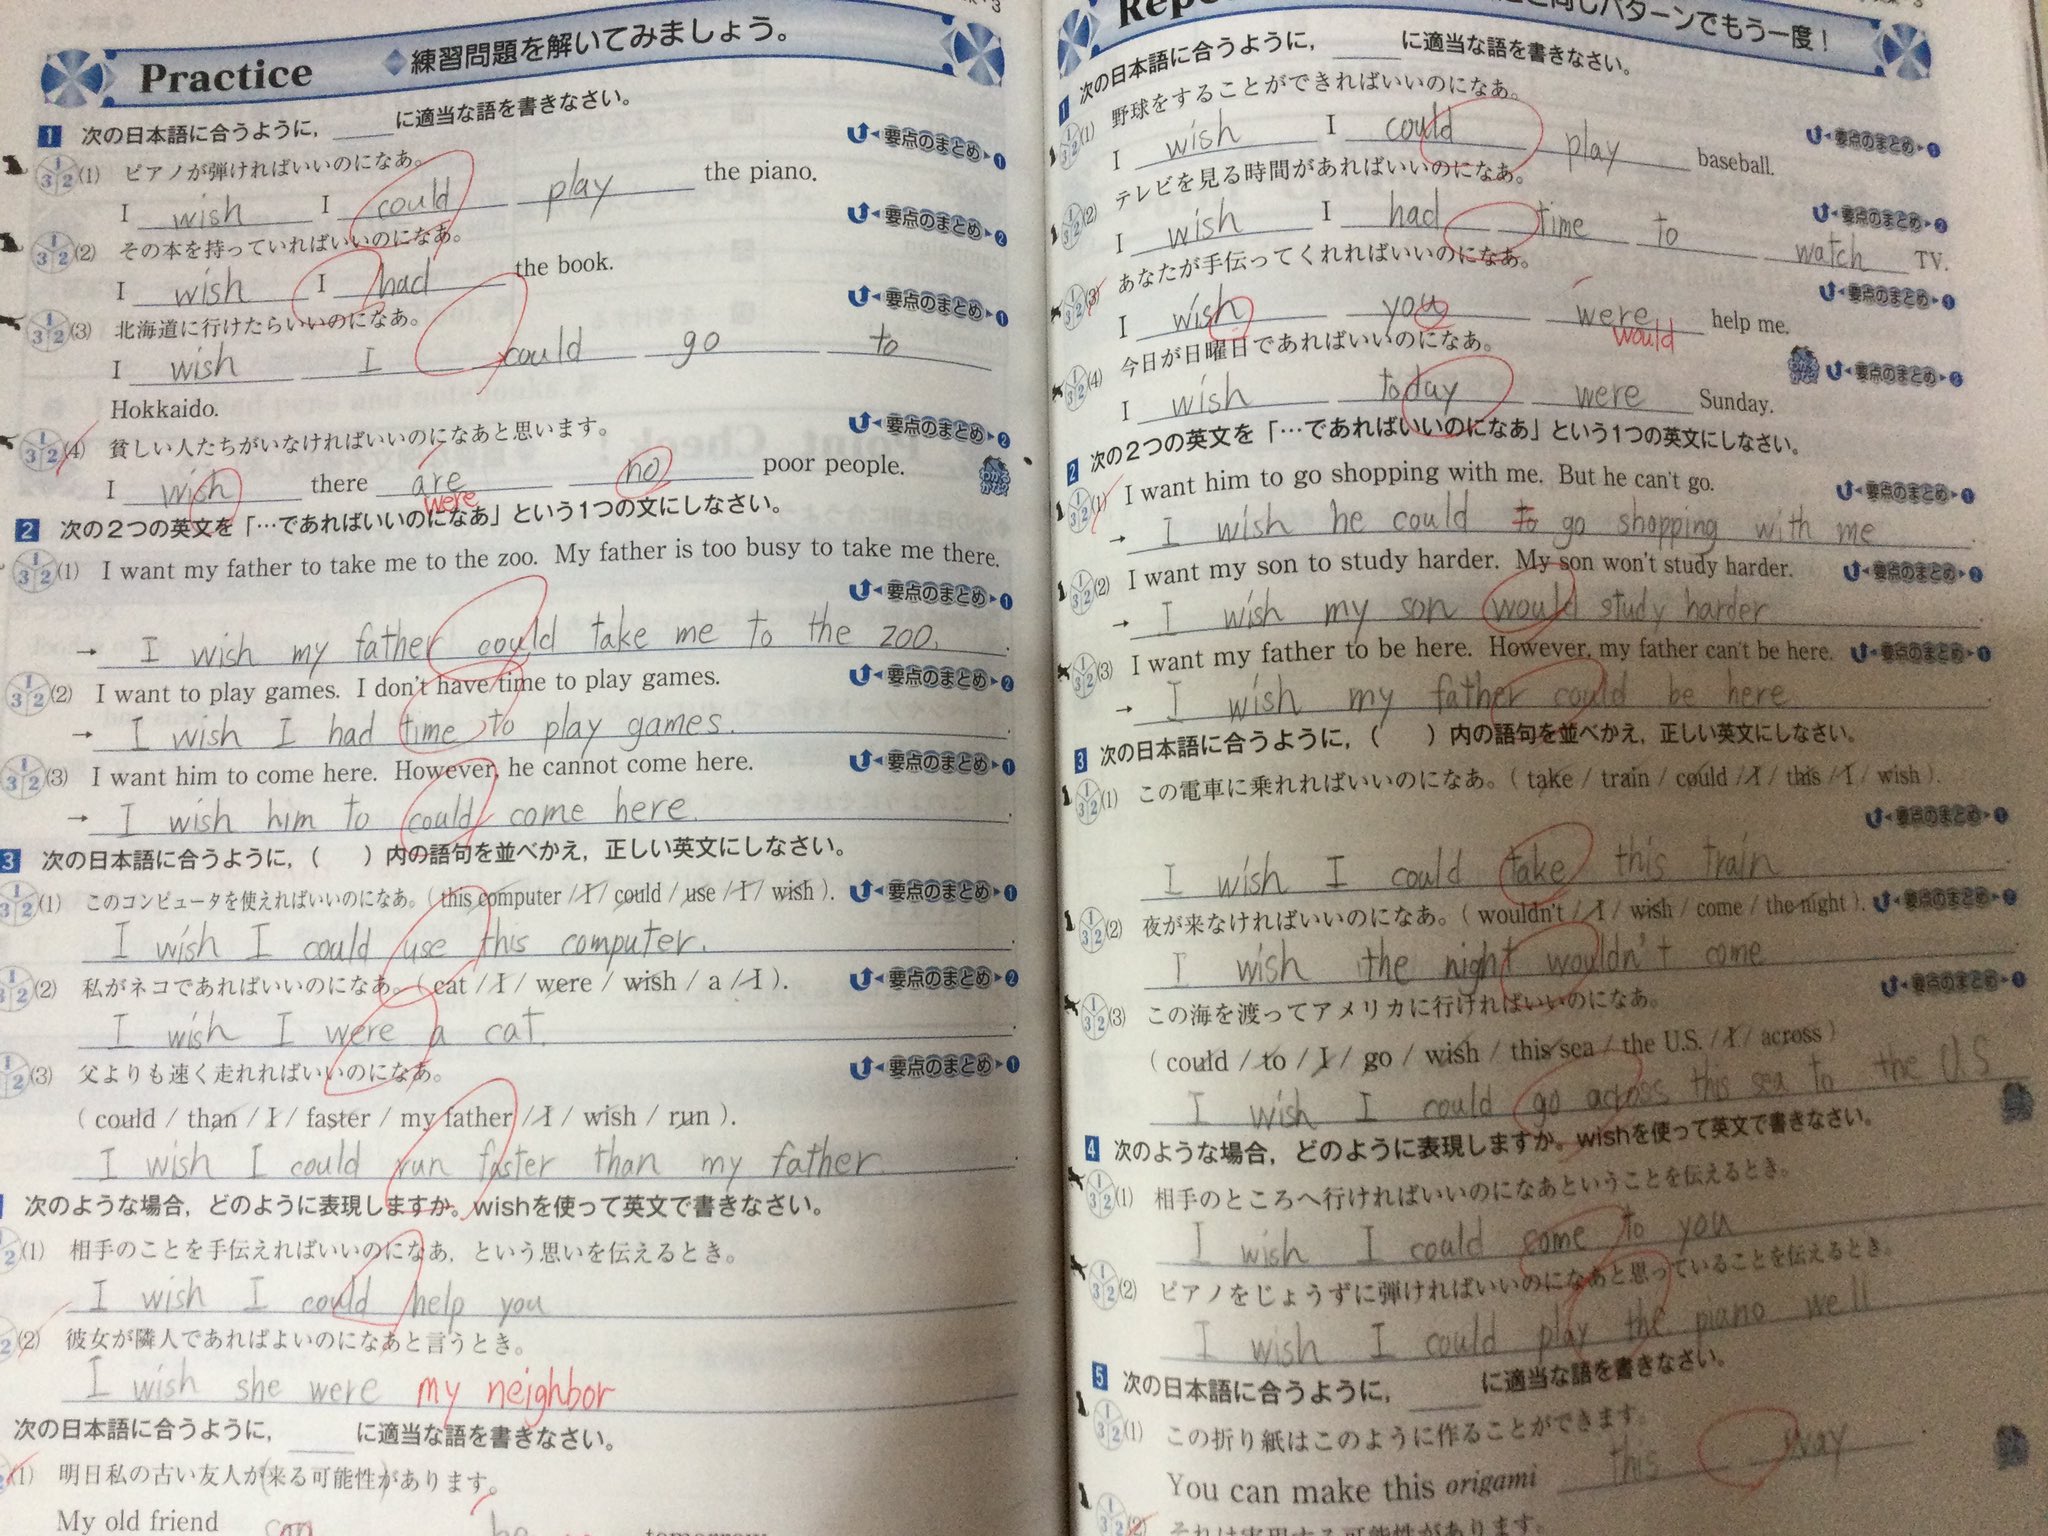 Practice ◆練習問題を解いてみましょう。
1 次の日本語に合うように，____に適当な語を書きなさい。
(1) ピアノが弾ければいいのになあ。
要点のまとめ 1
I wish I could play the piano.
(2) その本を持っていればいいのになあ。
要点のまとめ 2
I wish I had the book.
(3) 北海道に行けたらいいのになあ。
要点のまとめ 1
I wish I could go to
Hokkaido.
(4) 貧しい人たちがいなければいいのになあと思います。
要点のまとめ 2
I wish there are no poor people.
were
2 次の2つの英文を「…であればいいのになあ」という1つの文にしなさい。
(1) I want my father to take me to the zoo. My father is too busy to take me there.
要点のまとめ 1
→ I wish my father could take me to the zoo.
(2) I want to play games. I don't have time to play games. 要点のまとめ 2
→ I wish I had time to play games.
(3) I want him to come here. However, he cannot come here. 要点のまとめ 1
→ I wish him to could come here.
3 次の日本語に合うように，（ ）内の語句を並べかえ，正しい英文にしなさい。
(1) このコンピュータを使えればいいのになあ。( this computer / I / could / use / I / wish ). 要点のまとめ 1
I wish I could use this computer.
(2) 私がネコであればいいのになあ。( cat / I / were / wish / a / I ). 要点のまとめ 2
I wish I were a cat.
(3) 父よりも速く走れればいいのになあ。 要点のまとめ 1
( could / than / I / faster / my father / I / wish / run ).
I wish I could run faster than my father
次のような場合，どのように表現しますか。wishを使って英文で書きなさい。
(1) 相手のことを手伝えればいいのになあ，という思いを伝えるとき。
I wish I could help you
(2) 彼女が隣人であればよいのになあと言うとき。
I wish she were my neighbor
次の日本語に合うように，____に適当な語を書きなさい。
(1) 明日私の古い友人が(来る可能性)があります。
My old friend can be tomorrow
同じパターンでもう一度！
1 次の日本語に合うように，____に適当な語を書きなさい。
(1) 野球をすることができればいいのになあ。
要点のまとめ 1
I wish I could play baseball.
(2) テレビを見る時間があればいいのになあ。
要点のまとめ 2
I wish I had time to watch TV.
(3) あなたが手伝ってくれればいいのになあ。
要点のまとめ 1
I wish you were help me.
would
(4) 今日が日曜日であればいいのになあ。
要点のまとめ 2
I wish today were Sunday.
2 次の2つの英文を「…であればいいのになあ」という1つの英文にしなさい。
(1) I want him to go shopping with me. But he can't go. 要点のまとめ 1
→ I wish he could to go shopping with me
(2) I want my son to study harder. My son won't study harder. 要点のまとめ 2
→ I wish my son would study harder
(3) I want my father to be here. However, my father can't be here. 要点のまとめ 1
→ I wish my father could be here
3 次の日本語に合うように，（ ）内の語句を並べかえ，正しい英文にしなさい。
(1) この電車に乗れればいいのになあ。( take / train / could / I / this / I / wish ).
要点のまとめ 1
I wish I could take this train
(2) 夜が来なければいいのになあ。( wouldn't / I / wish / come / the night ). 要点のまとめ 2
I wish the night wouldn't come
(3) この海を渡ってアメリカに行ければいいのになあ。
要点のまとめ 1
( could / to / I / go / wish / this sea / the U.S. / I / across )
I wish I could go across this sea to the U.S
4 次のような場合，どのように表現しますか。wishを使って英文で書きなさい。
(1) 相手のところへ行ければいいのになあということを伝えるとき。
I wish I could come to you
(2) ピアノをじょうずに弾ければいいのになあと思っていることを伝えるとき。
I wish I could play the piano well
5 次の日本語に合うように，____に適当な語を書きなさい。
(1) この折り紙はこのように作ることができます。
You can make this origami this way
(2) それは実用する可能性があります。